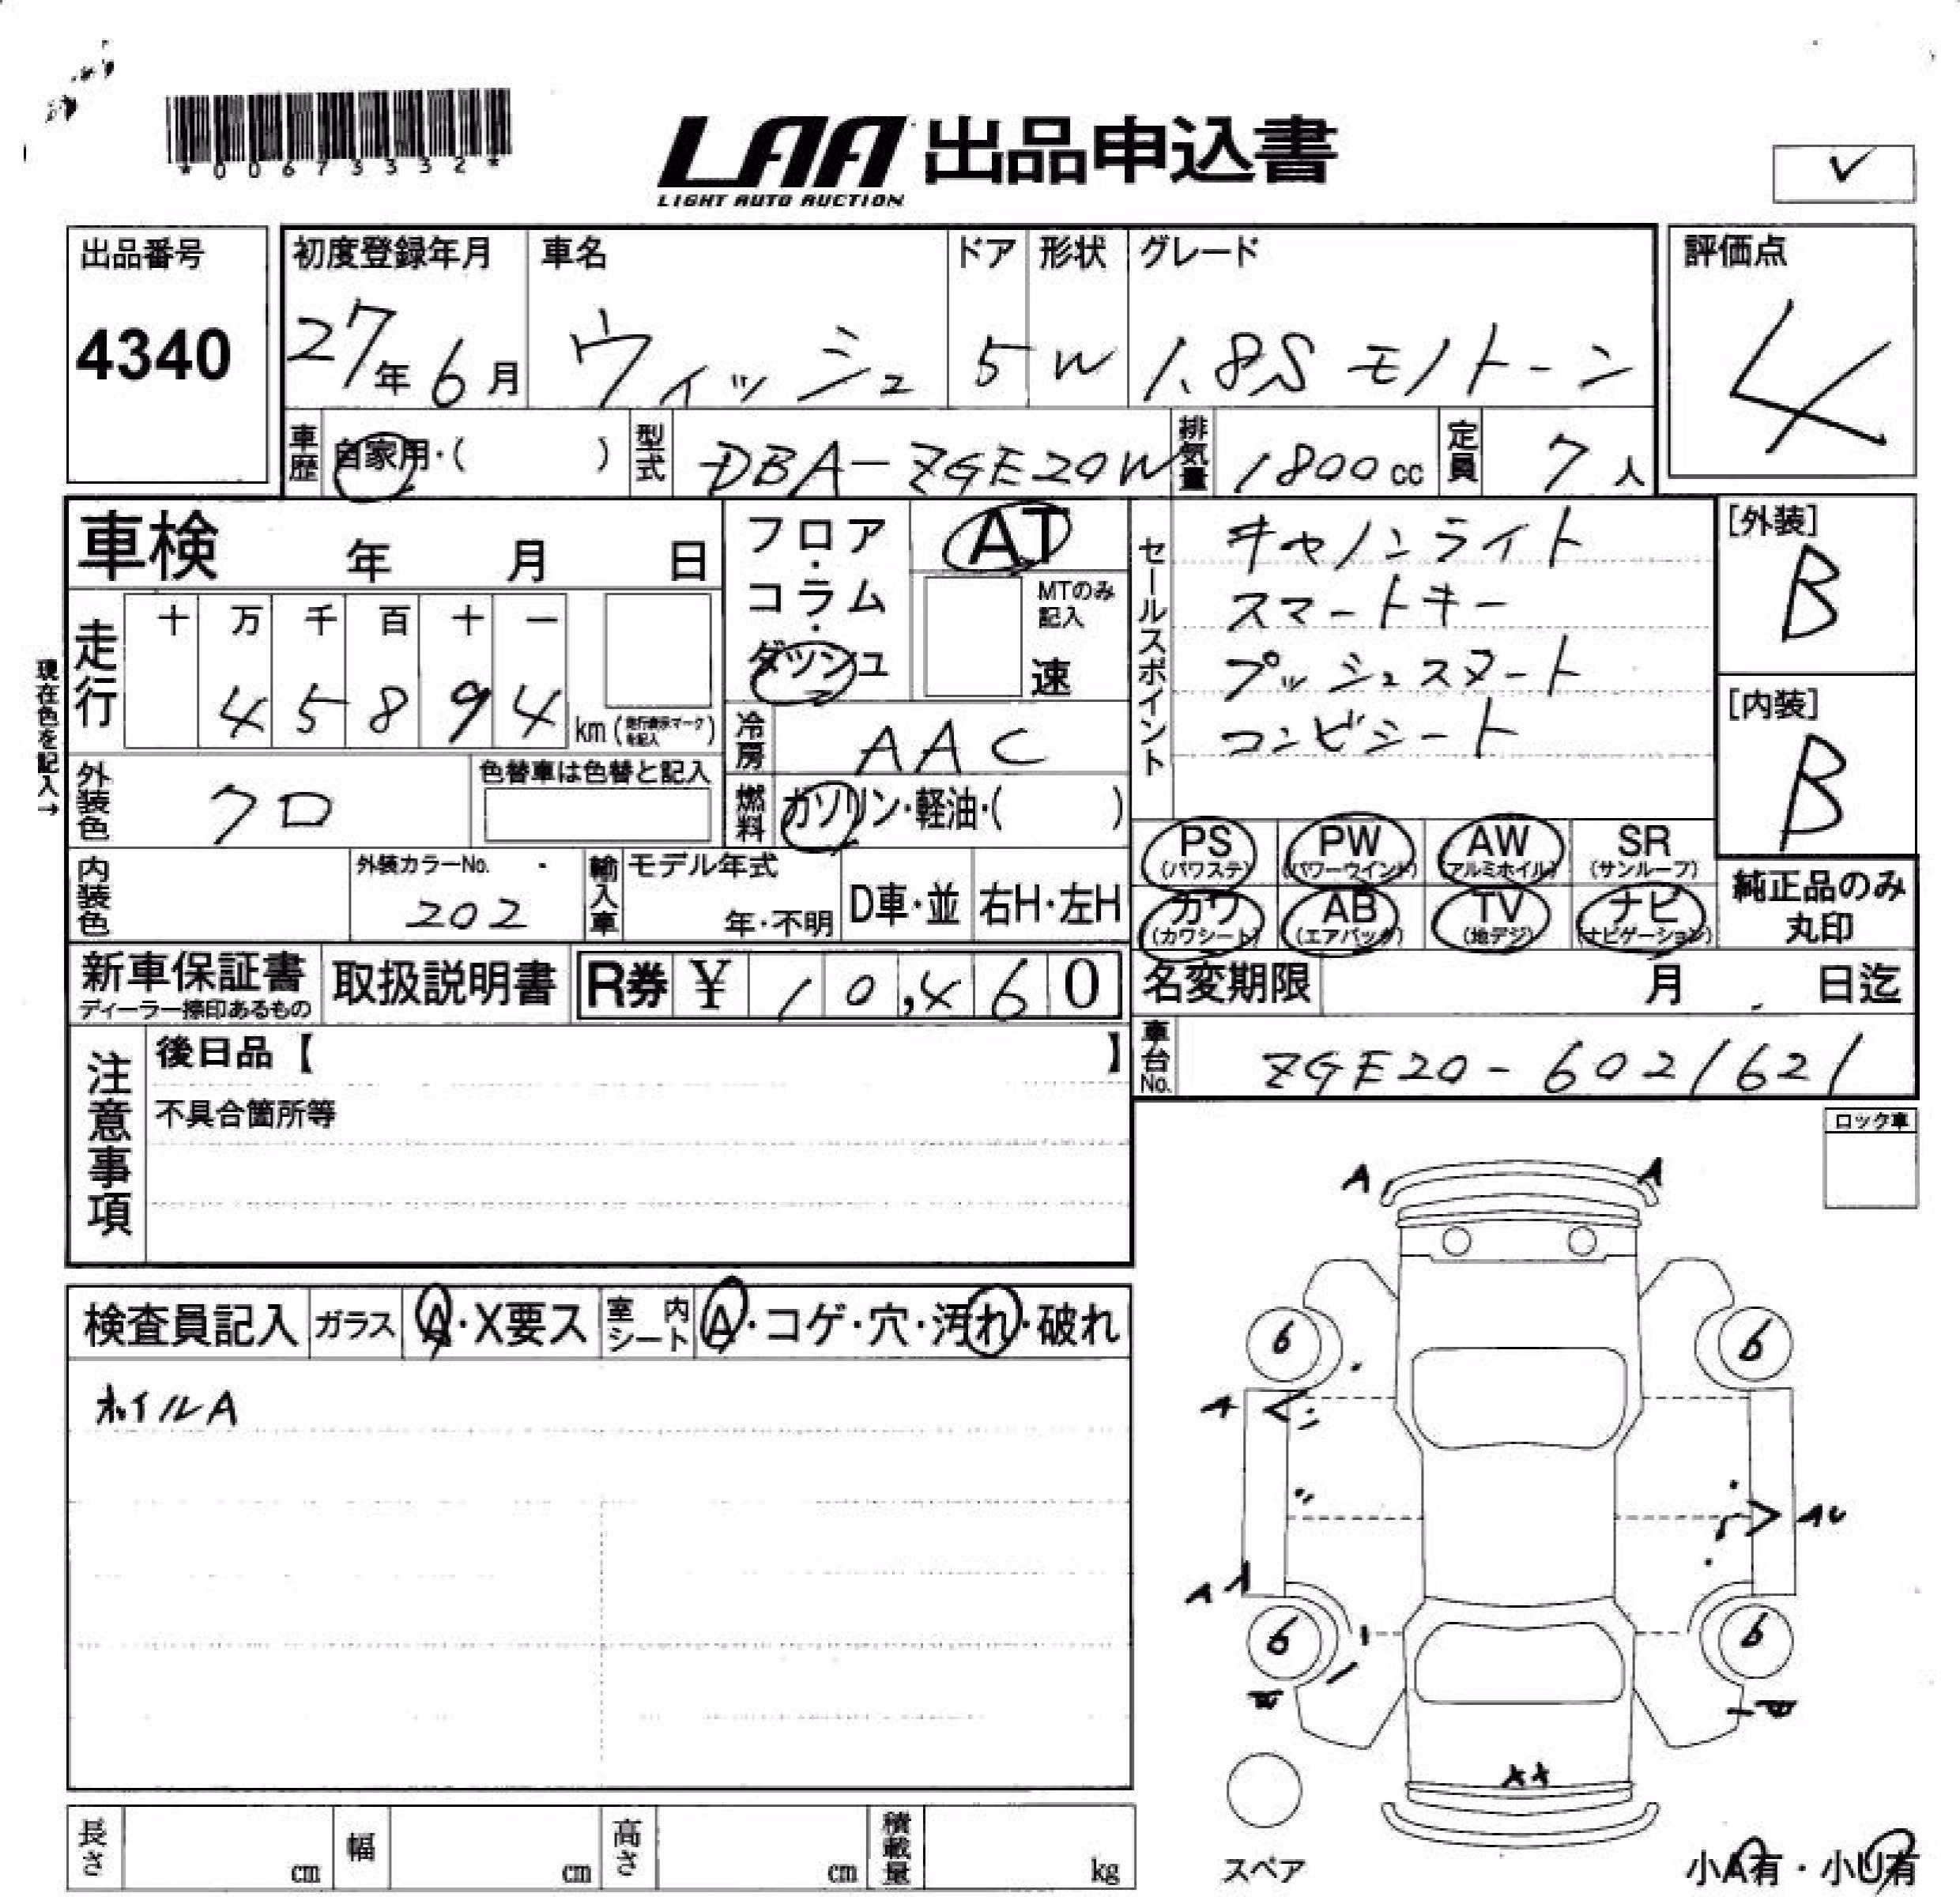 *00675332*
LAA 出品申込書
LIGHT AUTO AUCTION
✓
出品番号
4340
初度登録年月
27年6月
車名
ウィッシュ
ドア
5
形状
W
グレード
1.8S モノトーン
評価点
4
車歴 自家用・( )
型式 DBA-ZGE20W
排気量 1800cc
定員 7人
車検 年 月 日
フロア・コラム・ダッシュ
AT
MTのみ記入
速
セールスポイント
キャノンライト
スマートキー
プッシュスタート
コンビシート
[外装]
B
[内装]
B
現在色を記入→
走行
十 万 千 百 十 一
4 5 8 9 4
km(走行表示マークを記入)
冷房 AAC
外装色 クロ
色替車は色替と記入
燃料 ガソリン・軽油・( )
PS(パワステ) PW(パワーウインド) AW(アルミホイル) SR(サンルーフ)
カワ(カワシート) AB(エアバック) TV(地デジ) ナビ(ナビゲーション)
純正品のみ丸印
内装色
外装カラーNo.
202
輸入車
モデル年式
年・不明
D車・並
右H・左H
新車保証書
ディーラー捺印あるもの
取扱説明書
R券 ¥ 10,460
名変期限 月 日迄
車台No. ZGE20-6021621
注意事項
後日品【 】
不具合箇所等
ロック車
検査員記入
ガラス A・X要ス
室内シート A・コゲ・穴・汚れ・破れ
ホイルA
A A
6 6
A
AU
A A
6 6
スペア
小A有・小U有
長さ cm
幅 cm
高さ cm
積載量 kg